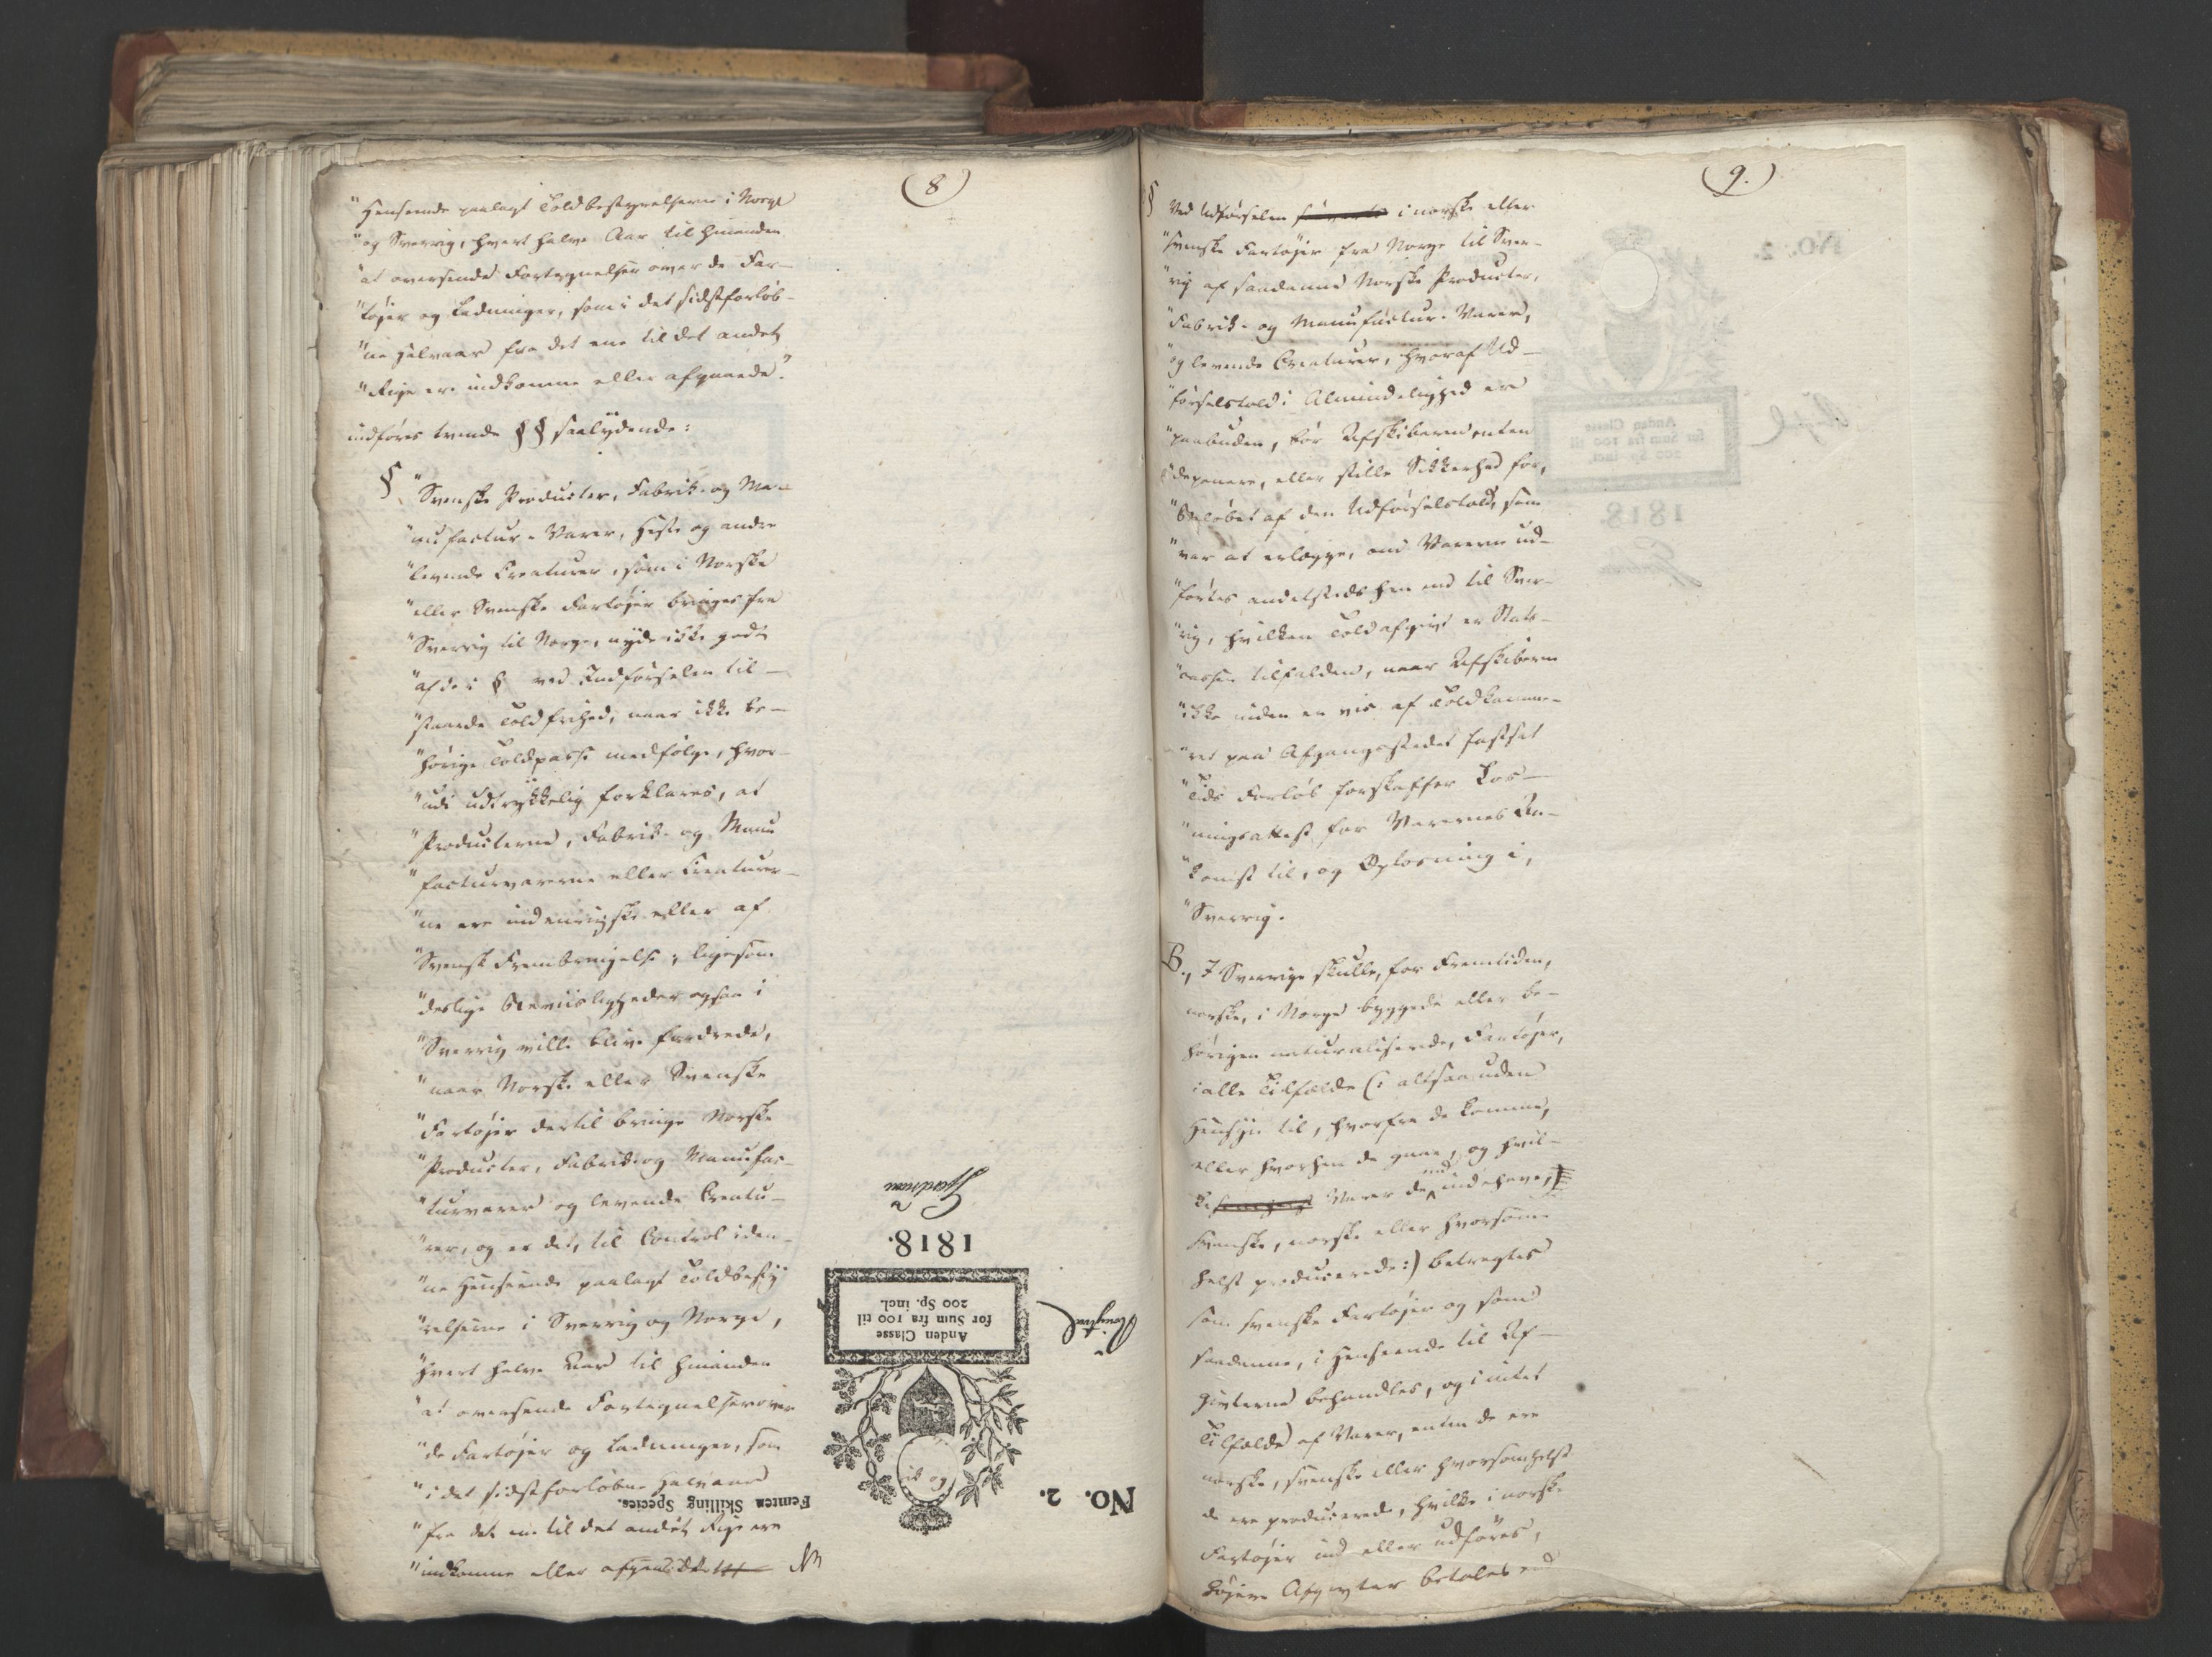 (8)
"Henseende paalagt Toldbestyrelserne i Norge
"og Sverrig, hvert halve Aar til hinanden
"at oversende Fortegnelser over de Far-
"tøjer og Ladninger, som i det sidstforløb-
"ne Halvaar fra det ene til det andet
"Rige ere indkomne eller afgaaede."
indføres tvende §§ saalydende:
§. "Svenske Producter, Fabrik- og Ma-
"nufactur-Varer, Heste og andre
"levende Creaturer, som i Norske
"eller Svenske Fartøjer bringes fra
"Sverrig til Norge, nyde ikke godt
"af de i § ved Indførselen til-
"staaede Toldfrihed, naar ikke be-
"hørige Toldpasse medfølge, hvor-
"udi udtrykkelig forklares, at
"Producterne, Fabrik- og Manu
"facturvarerne eller Creaturer-
"ne ere indenrigske eller af
"Svensk Frembringelse; ligesom
"deslige Beviisligheder ogsaa i
"Sverrig ville blive fordrede,
"naar Norske eller Svenske
"Fartøjer dertil bringe Norske
"Producter, Fabrik og Manufac-
"turvarer og levende Creatu-
"rer, og er det, til Control i den-
"ne Henseende paalagt Toldbesty
"relserne i Sverrig og Norge,
"hvert halve Aar til hinanden
"at oversende Fortegnelser over
"de Fartøjer og Ladninger, som
"i det sidstforløbne Halvaar
"fra det ene til det andet Rige ere
"indkomne eller
No. 2.
Femten Skilling Species.
Anden Classe
for Sum fra 100 til
200 Sp. incl.
1818.
(9.)
§ Ved Udførselen i norske eller
"svenske Fartøjer fra Norge til Sver-
"rig af saadanne Norske Producter,
"Fabrik- og Manufactur-Varer,
"og levende Creaturer, hvoraf Ud-
"førselstold i Almindelighed er
"paabuden, bør Afskiberen enten
"deponere, eller stille Sikkerhed for,
"Beløbet af den Udførselstold, som
"var at erlægge, om Varerne ud-
"førtes andetsteds hen end til Sver-
"rig, hvilken Toldafgivt er Stats-
"cassen tilfalden, naar Afskiberen
"ikke inden en vis af Toldkamme-
"ret paa Afgangsstedet fastsat
"Tids Forløb forskaffer Los-
"ningsattest for Varernes An-
"komst til, og Oplosning i,
"Sverrig.
B., I Sverrige skulle, for Fremtiden,
norske, i Norge byggede eller be-
hørigen naturaliserede, Fartøjer,
i alle Tilfælde (: altsaa uden
Hensyn til, hvorfra de komme,
eller hvorhen de gaae, og hvil-
ke Varer de indehave,
svenske, norske eller hvorsom-
helst producerede:) betragtes
som svenske Fartøjer og som
saadanne, i Henseende til Af-
givterne behandles, og i intet
Tilfælde af Varer, enten de ere
norske, svenske eller hvorsomhelst
de ere producerede, hvilke i norske
Fartøjer ind eller udføres,
højere Afgivter betales end